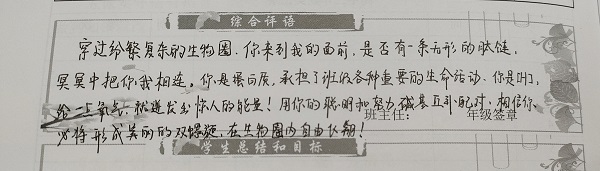 综合评语
穿过纷繁复杂的生物圈,你来到我的面前,是否有一条无形的肽链,
冥冥中把你我相连。你是蛋白质,承担了班级各种重要的生命活动。你是叶,
给一点氧气,就迸发出惊人的能量!用你的聪明和努力碱基互补配对,相信你
必将形成美丽的双螺旋,在生物圈内自由飞翔!
班主任: 年级签章
学生总结和目标